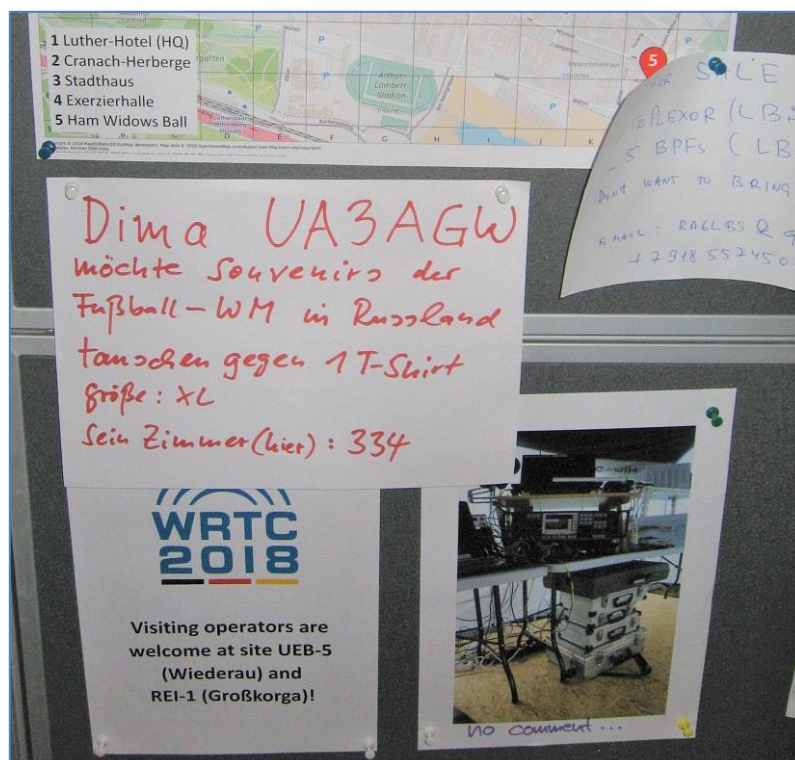 1 Luther-Hotel (HQ)
2 Cranach-Herberge
3 Stadthaus
4 Exerzierhalle
5 Ham Widows Ball
Arthur-
Lambert
Stadion
P
P
P
P
5
D
E
F
G
H
I
J
K
FOR SALE
TRIPLEXOR (LB
- 5 BPFs (LB
DON'T WANT TO BRING
EMAIL: RA6LBS @ g
+7918 557450
Dima UA3AGW
möchte Souvenirs der
Fußball-WM in Russland
tauschen gegen 1 T-Shirt
größe: XL
Sein Zimmer (hier): 334
WRTC
2018
Visiting operators are
welcome at site UEB-5
(Wiederau) and
REI-1 (Großkorga)!
no comment...